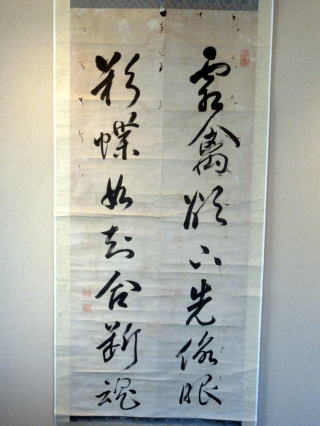 霜禽欲下先偸眼
粉蝶如知合断魂